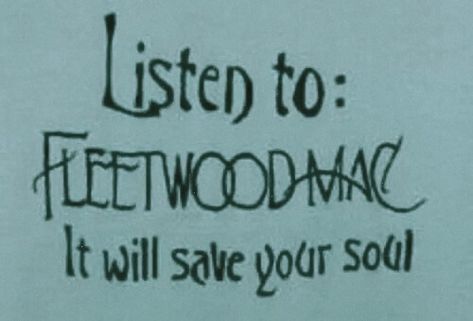 Listen to:
FLEETWOOD MAC
It will save your soul